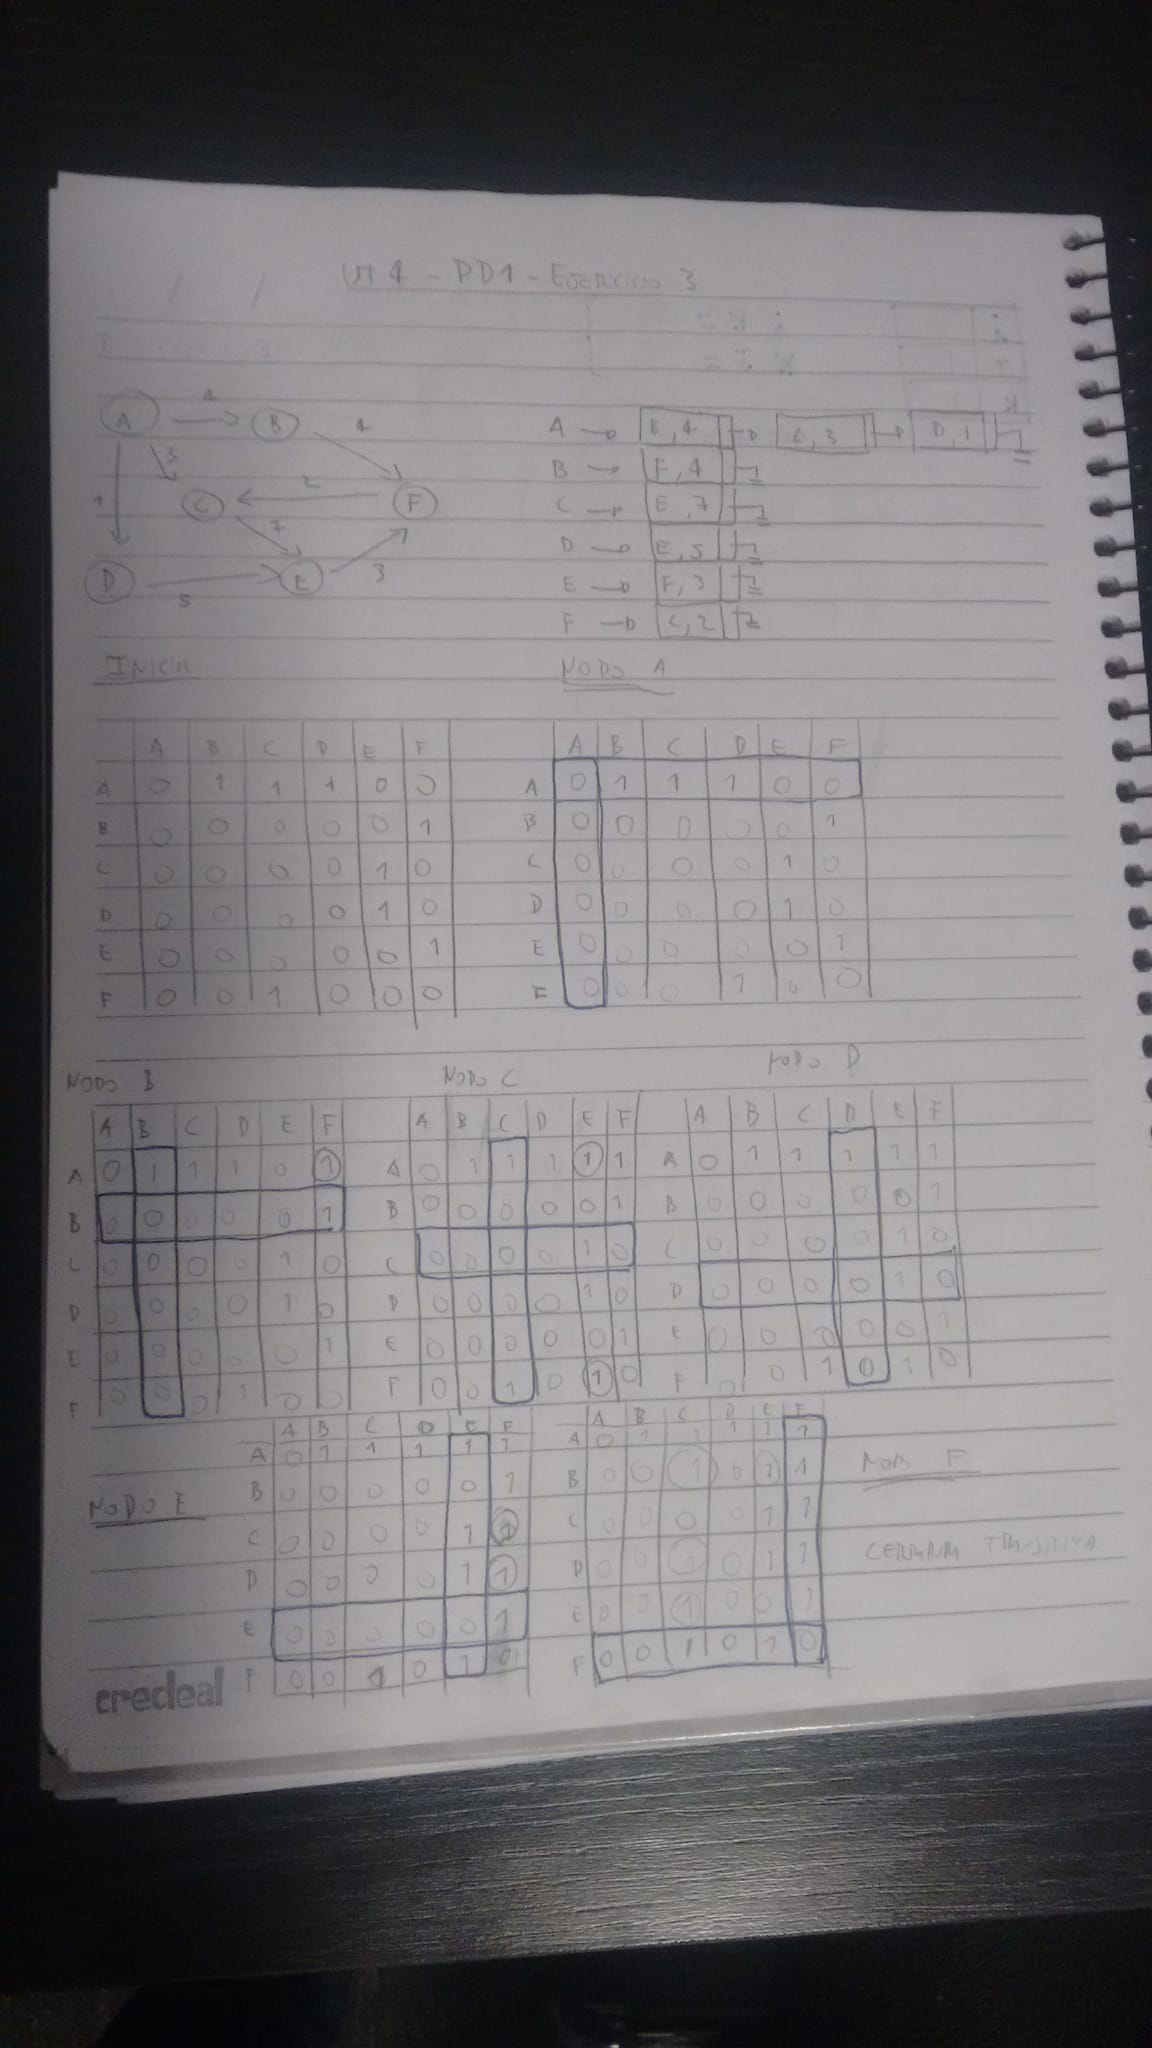 UT 4 - PD1 - EJERCICIO 3
A B C D E F
A → B, 4 → C, 3 → D, 1
B → F, 4
C → E, 7
D → E, 5
E → F, 3
F → C, 2
4 3 2 7 5 3
NODO A
A B C D E F
A 0 1 1 1 0 0
B 0 0 0 0 0 1
C 0 0 0 0 1 0
D 0 0 0 0 1 0
E 0 0 0 0 0 1
F 0 0 1 0 0 0
A B C D E F
A 0 1 1 1 0 0
B 0 0 0 0 0 1
C 0 0 0 0 1 0
D 0 0 0 0 1 0
E 0 0 0 0 0 1
0 0 0 1 0 0
NODO B
A B C D E F
A 0 1 1 1 0 1
B 0 0 0 0 0 1
C 0 0 0 0 1 0
D 0 0 0 0 1 0
E 0 0 0 0 0 1
F 0 0 0 1 0 0
NODO C
A B C D E F
A 0 1 1 1 1 1
B 0 0 0 0 0 1
C 0 0 0 0 1 0
D 0 0 0 0 1 0
E 0 0 0 0 0 1
F 0 0 1 0 1 0
NODO D
A B C D E F
A 0 1 1 1 1 1
B 0 0 0 0 0 1
C 0 0 0 0 1 0
D 0 0 0 0 1 0
E 0 0 0 0 0 1
F 0 0 1 0 1 0
NODO E
A B C D E F
A 0 1 1 1 1 1
B 0 0 0 0 0 1
C 0 0 0 0 1 1
D 0 0 0 0 1 1
E 0 0 0 0 0 1
F 0 0 1 0 1 0
A B C D E F
A 0 1 1 1 1 1
B 0 0 1 0 1 1
C 0 0 0 0 1 1
D 0 0 1 0 1 1
E 0 0 1 0 0 1
F 0 0 1 0 1 0
F
credeal